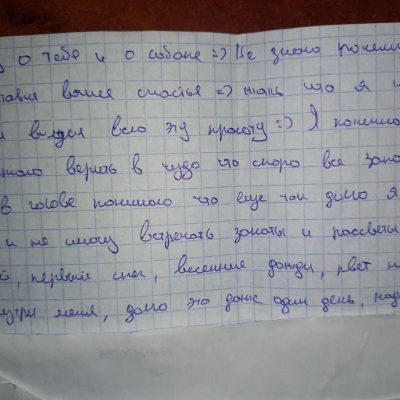 о тебе и о собаке =) Не знаю почему
ваше счастье =) жаль что я н
видел всю эту красоту =) Я понимаю
верить в чудо что скоро все зако
в голове понимаю что еще так долго я
и не смогу встречать закаты и рассветы
й, первый снег, весенние дожди, рвет н
нутри меня, долго это даже один день, над